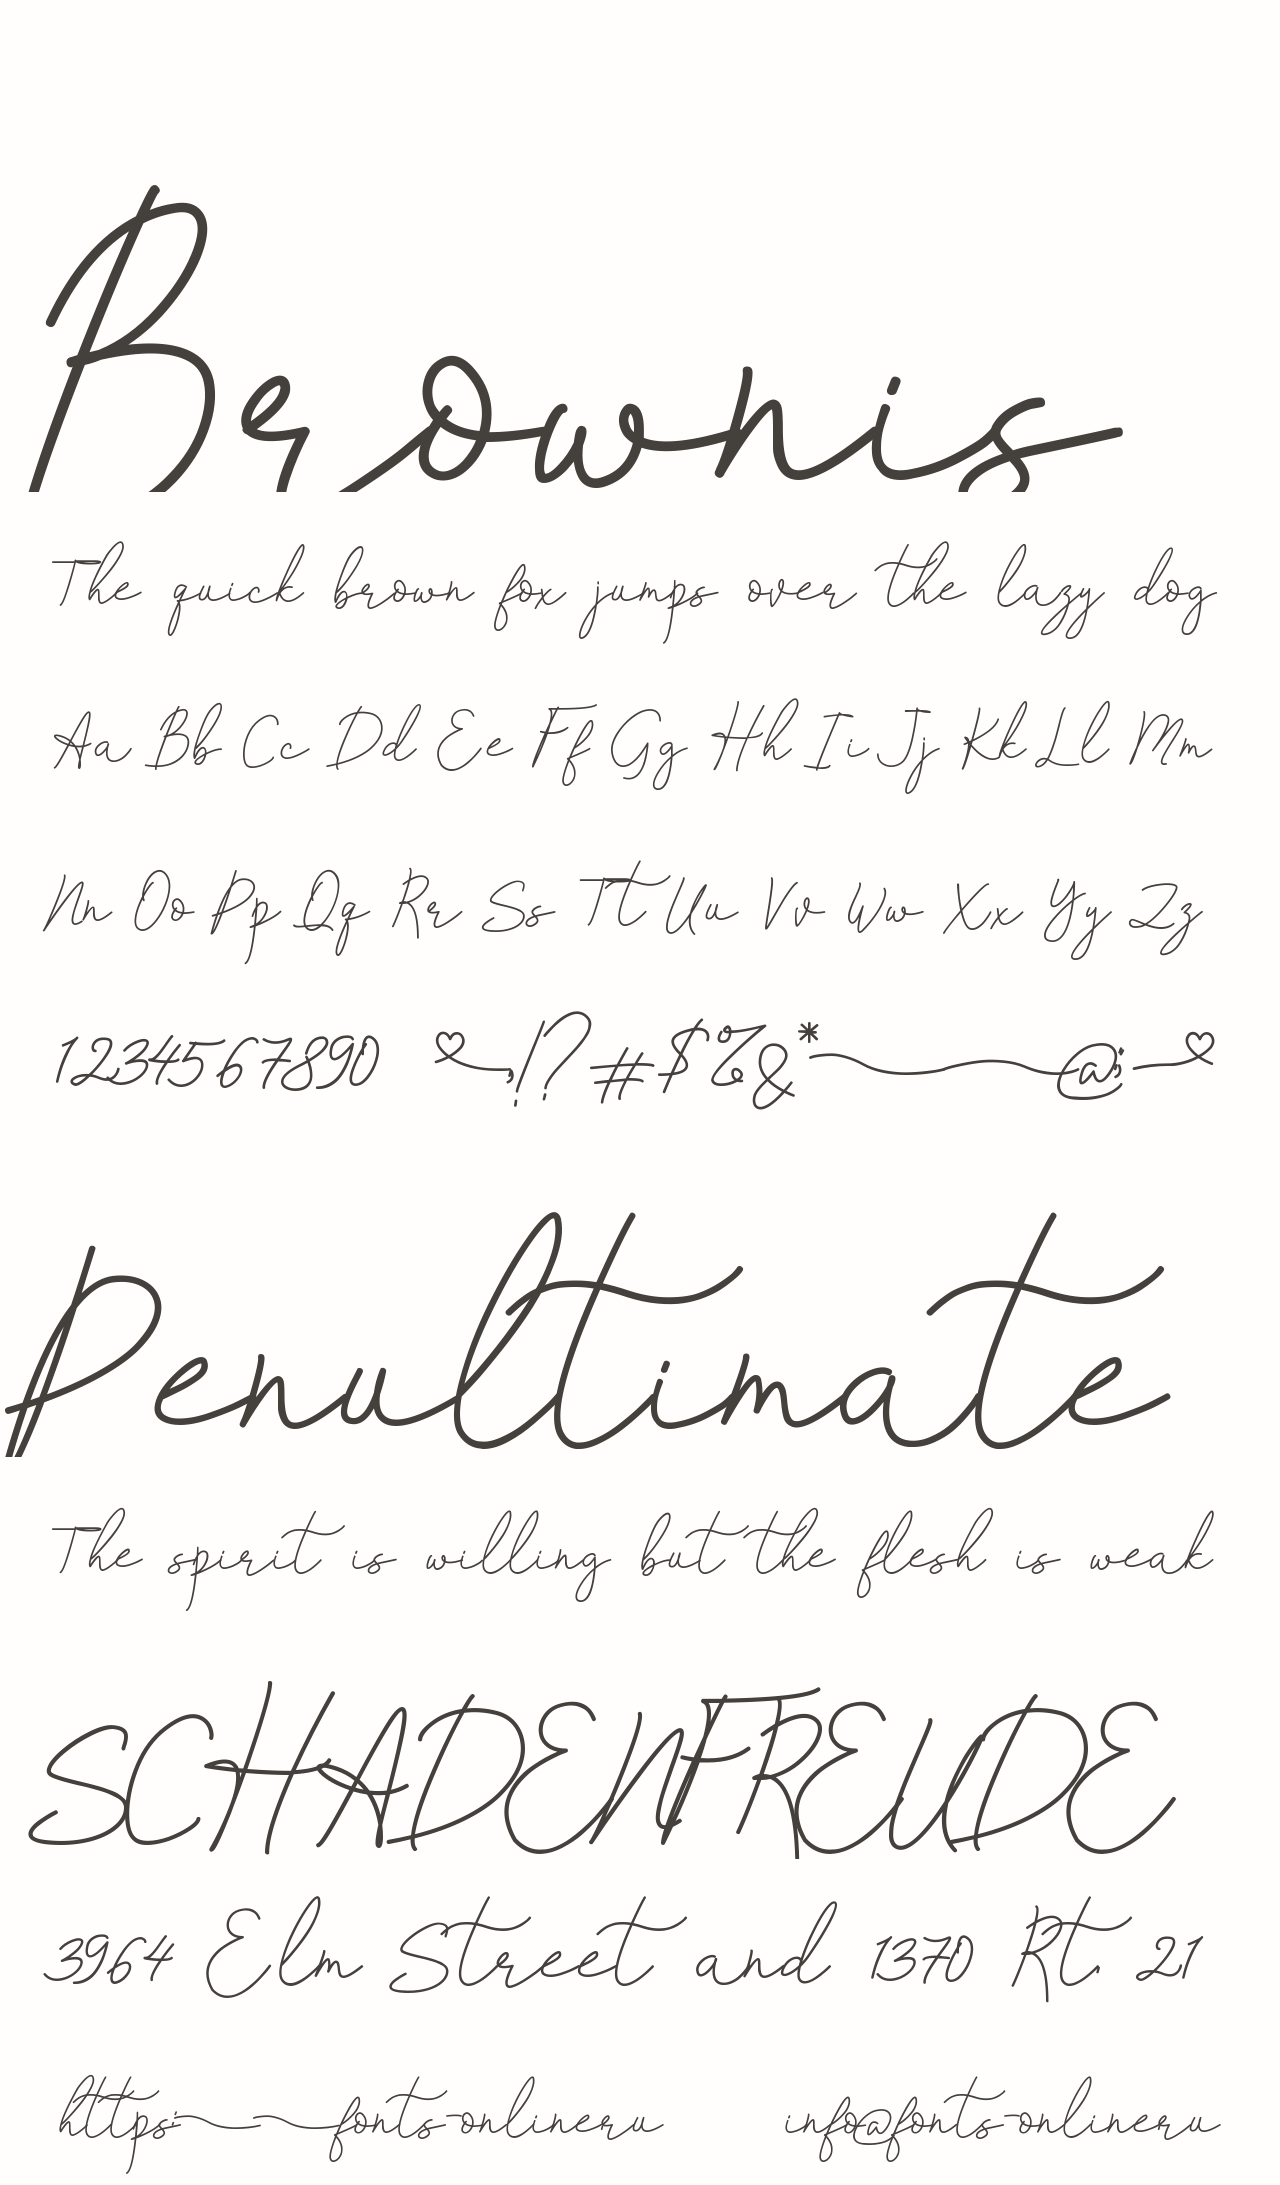 Brownis
The quick brown fox jumps over the lazy dog
Aa Bb Cc Dd Ee Ff Gg Hh Ii Jj Kk Ll Mm
Nn Oo Pp Qq Rr Ss Tt Uu Vv Ww Xx Yy Zz
1234567890 !?#$%&* @;
Penultimate
The spirit is willing but the flesh is weak
SCHADENFREUDE
3964 Elm Street and 1370 Rt. 21
https fonts-online.ru info@fonts-online.ru